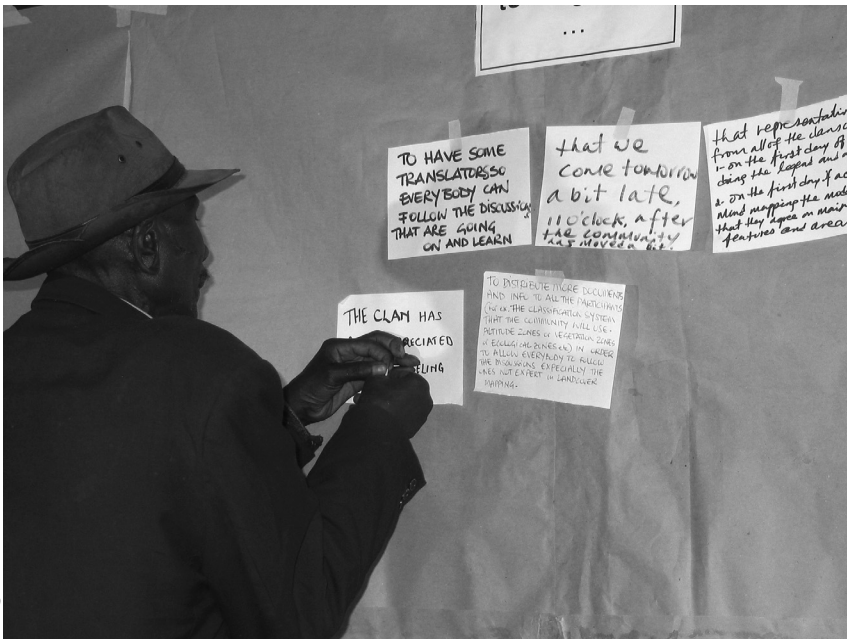 ...
TO HAVE SOME
TRANSLATORS SO
EVERYBODY CAN
FOLLOW THE DISCUSSIONS
THAT ARE GOING
ON AND LEARN
that we
come tomorrow
a bit late,
11 o'clock, after
the community
has moved a bit.
that representatives
from all of the clans
1- on the first day of
doing the legend and
2- on the first day of
mind mapping the
that they agree on main
features and area
THE CLAN HAS
TO DISTRIBUTE MORE DOCUMENTS
AND INFO TO ALL THE PARTICIPANTS
THE CLASSIFICATION SYSTEM
THAT THE COMMUNITY WILL USE -
ALTITUDE ZONES or VEGETATION ZONES
or ECOLOGICAL ZONES etc) IN ORDER
TO ALLOW EVERYBODY TO FOLLOW
THE DISCUSSIONS ESPECIALLY THE
ONES NOT EXPERT IN LANDCOVER
MAPPING.